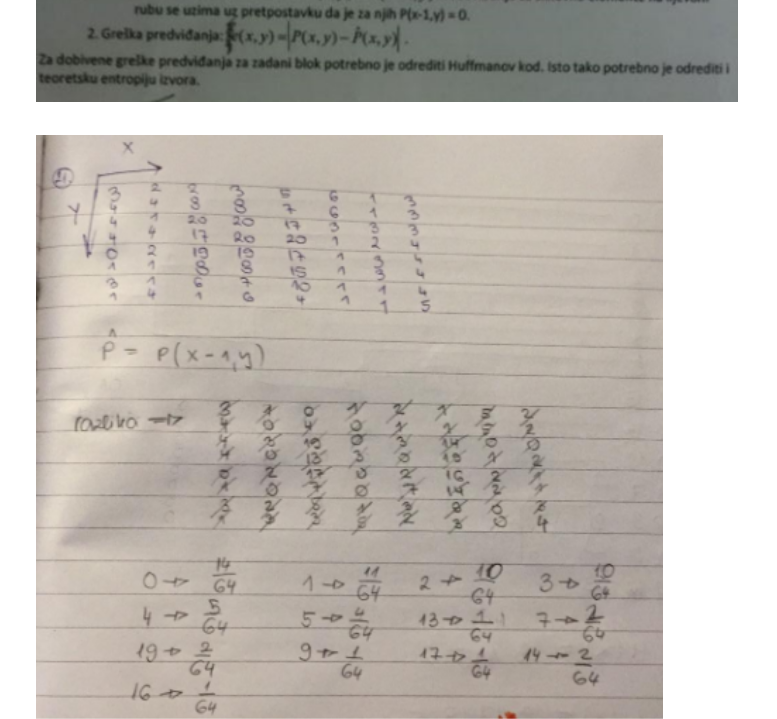 rubu se uzima uz pretpostavku da je za njih P(x-1,y) = 0.
2. Greška predviđanja: e(x,y) = |P(x,y) − P̂(x,y)| .
Za dobivene greške predviđanja za zadani blok potrebno je odrediti Huffmanov kod. Isto tako potrebno je odrediti i
teoretsku entropiju izvora.
X
Y
3 2 2 3 5 6 1 3
4 4 8 8 7 6 1 3
4 1 20 20 17 3 3 3
4 4 17 20 20 1 2 4
0 2 19 19 17 1 3
1 1 8 8 15 1 3 4
3 1 6 7 10 1 1 4
1 4 1 6 4 1 1 5
P̂ = P(x-1,y)
razlika →
3 1 0 1 2 1 5 2
4 0 4 0 1 1 5 2
4 3 19 0 3 14 0 0
4 0 13 3 0 19 1 2
0 2 17 0 2 16 2 1
1 0 7 0 7 14 2 1
3 2 5 1 3 9 0 3
1 3 3 5 2 3 0 4
0 → 14/64 1 → 11/64 2 → 10/64 3 → 10/64
4 → 5/64 5 → 4/64 13 → 1/64 7 → 2/64
19 → 2/64 9 → 1/64 17 → 1/64 14 → 2/64
16 → 1/64